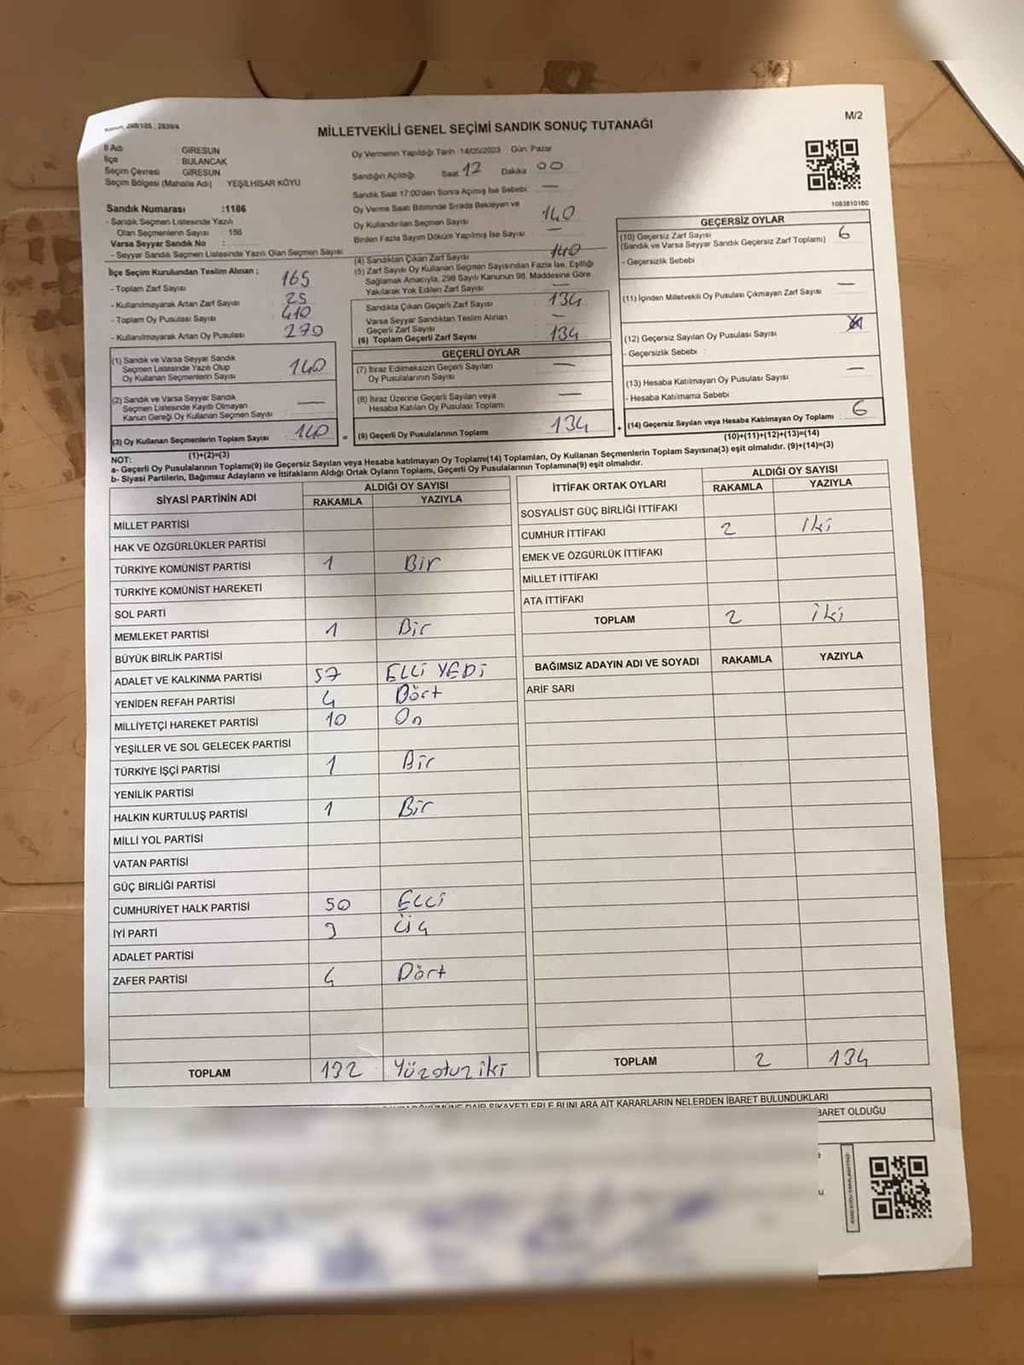 Kanun: 298/105 ; 2839/4
M/2
MİLLETVEKİLİ GENEL SEÇİMİ SANDIK SONUÇ TUTANAĞI
İl Adı GİRESUN
İlçe BULANCAK
Seçim Çevresi GİRESUN
Seçim Bölgesi (Mahalle Adı) YEŞİLHİSAR KÖYÜ
Sandık Numarası :1186
- Sandık Seçmen Listesinde Yazılı
Olan Seçmenlerin Sayısı 156
Varsa Seyyar Sandık No :
- Seyyar Sandık Seçmen Listesinde Yazılı Olan Seçmen Sayısı
İlçe Seçim Kurulundan Teslim Alınan ;
- Toplam Zarf Sayısı 165
- Kullanılmayarak Artan Zarf Sayısı 25
- Toplam Oy Pusulası Sayısı 410
- Kullanılmayarak Artan Oy Pusulası 270
(1) Sandık ve Varsa Seyyar Sandık
Seçmen Listesinde Yazılı Olup
Oy Kullanan Seçmenlerin Sayısı 140
(2) Sandık ve Varsa Seyyar Sandık
Seçmen Listesinde Kayıtlı Olmayan
Kanun Gereği Oy Kullanan Seçmen Sayısı —
(3) Oy Kullanan Seçmenlerin Toplam Sayısı 140
(1)+(2)=(3)
Oy Vermenin Yapıldığı Tarih :14/05/2023 Gün: Pazar
Sandığın Açıldığı Saat 17 Dakika 00
Sandık Saat 17:00'den Sonra Açılmış İse Sebebi —
Oy Verme Saati Bitiminde Sırada Bekleyen ve
Oy Kullandırılan Seçmen Sayısı 140
Birden Fazla Sayım Döküm Yapılmış İse Sayısı —
(4) Sandıktan Çıkan Zarf Sayısı 140
(5) Zarf Sayısı Oy Kullanan Seçmen Sayısından Fazla İse, Eşitliği
Sağlamak Amacıyla, 298 Sayılı Kanunun 98. Maddesine Göre
Yakılarak Yok Edilen Zarf Sayısı —
Sandıkta Çıkan Geçerli Zarf Sayısı 134
Varsa Seyyar Sandıktan Teslim Alınan
Geçerli Zarf Sayısı —
(6) Toplam Geçerli Zarf Sayısı 134
GEÇERLİ OYLAR
(7) İtiraz Edilmeksizin Geçerli Sayılan
Oy Pusulalarının Sayısı —
(8) İtiraz Üzerine Geçerli Sayılan veya
Hesaba Katılan Oy Pusulaları Toplamı —
= (9) Geçerli Oy Pusulalarının Toplamı 134
1083810160
GEÇERSİZ OYLAR
(10) Geçersiz Zarf Sayısı 6
(Sandık ve Varsa Seyyar Sandık Geçersiz Zarf Toplamı)
- Geçersizlik Sebebi
(11) İçinden Milletvekili Oy Pusulası Çıkmayan Zarf Sayısı —
(12) Geçersiz Sayılan Oy Pusulası Sayısı
- Geçersizlik Sebebi
(13) Hesaba Katılmayan Oy Pusulası Sayısı —
- Hesaba Katılmama Sebebi
+ (14) Geçersiz Sayılan veya Hesaba Katılmayan Oy Toplamı 6
(10)+(11)+(12)+(13)=(14)
NOT:
a- Geçerli Oy Pusulalarının Toplamı(9) ile Geçersiz Sayılan veya Hesaba katılmayan Oy Toplamı(14) Toplamları, Oy Kullanan Seçmenlerin Toplam Sayısına(3) eşit olmalıdır. (9)+(14)=(3)
b- Siyasi Partilerin, Bağımsız Adayların ve İttifakların Aldığı Ortak Oyların Toplamı, Geçerli Oy Pusulalarının Toplamına(9) eşit olmalıdır.
SİYASİ PARTİNİN ADI ALDIĞI OY SAYISI
RAKAMLA YAZIYLA
MİLLET PARTİSİ
HAK VE ÖZGÜRLÜKLER PARTİSİ
TÜRKİYE KOMÜNİST PARTİSİ 1 Bir
TÜRKİYE KOMÜNİST HAREKETİ
SOL PARTİ
MEMLEKET PARTİSİ 1 Bir
BÜYÜK BİRLİK PARTİSİ
ADALET VE KALKINMA PARTİSİ 57 ELLİ YEDİ
YENİDEN REFAH PARTİSİ 4 Dört
MİLLİYETÇİ HAREKET PARTİSİ 10 On
YEŞİLLER VE SOL GELECEK PARTİSİ
TÜRKİYE İŞÇİ PARTİSİ 1 Bir
YENİLİK PARTİSİ
HALKIN KURTULUŞ PARTİSİ 1 Bir
MİLLİ YOL PARTİSİ
VATAN PARTİSİ
GÜÇ BİRLİĞİ PARTİSİ
CUMHURİYET HALK PARTİSİ 50 Elli
İYİ PARTİ 3 Üç
ADALET PARTİSİ
ZAFER PARTİSİ 4 Dört
TOPLAM 132 Yüzotuz iki
İTTİFAK ORTAK OYLARI ALDIĞI OY SAYISI
RAKAMLA YAZIYLA
SOSYALİST GÜÇ BİRLİĞİ İTTİFAKI
CUMHUR İTTİFAKI 2 İki
EMEK VE ÖZGÜRLÜK İTTİFAKI
MİLLET İTTİFAKI
ATA İTTİFAKI
TOPLAM 2 iki
BAĞIMSIZ ADAYIN ADI VE SOYADI RAKAMLA YAZIYLA
ARİF SARI
TOPLAM 2 134
DÖKÜMÜNE DAİR ŞİKAYETLERLE BUNLARA AİT KARARLARIN NELERDEN İBARET BULUNDUKLARI
BARET OLDUĞU